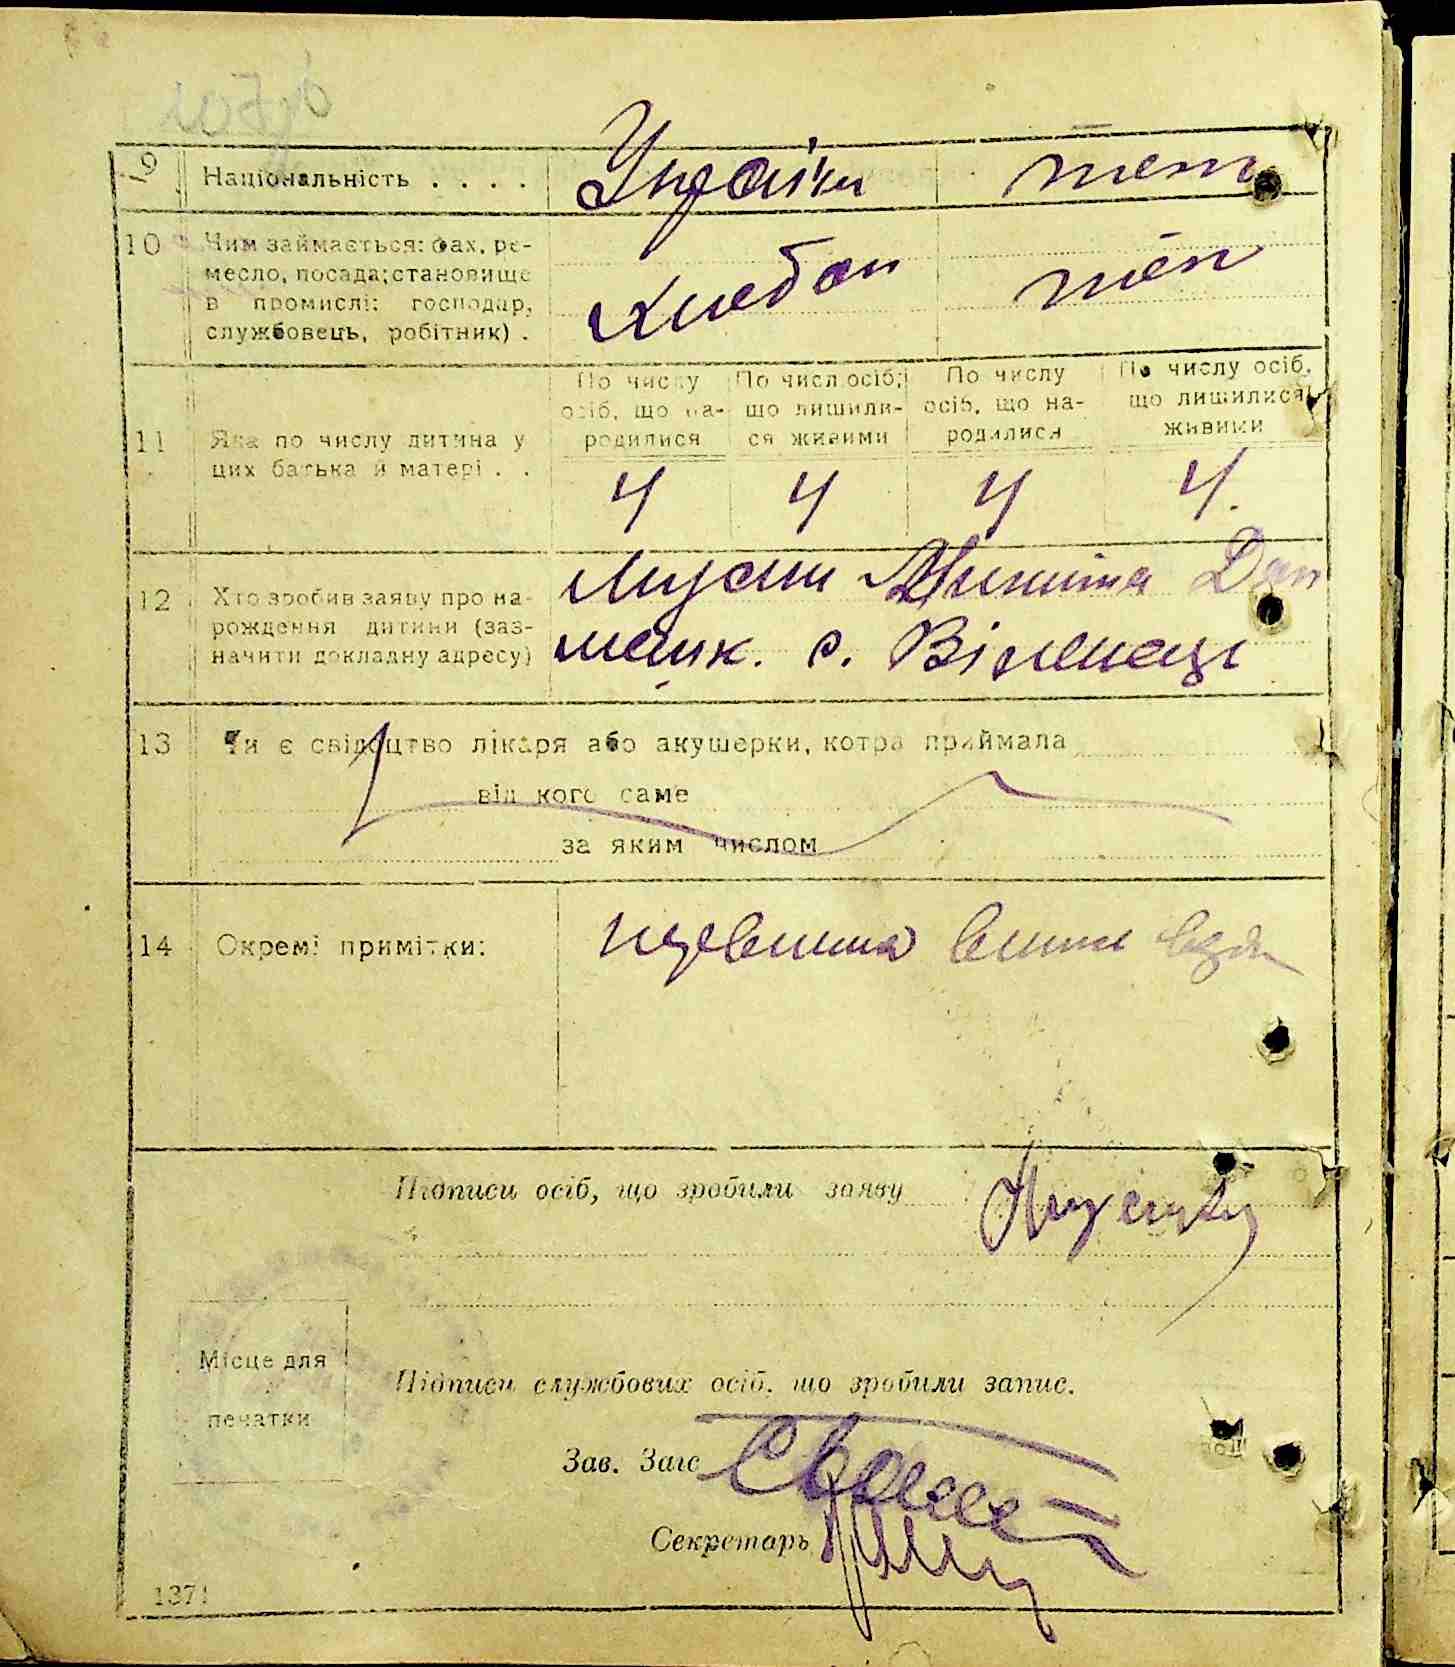 9 Національність . . . . Україн теж
10 Чим займається: фах, ре-
месло, посада; становище
в промислі: господар,
службовець, робітник) .
Хлебоп теж
По числу осіб, що на-родилися
По числ. осіб, що лишили-ся живими
По числу осіб, що на-родилися
По числу осіб, що лишилися живими
11 Яка по числу дитина у
цих батька й матері . .
4 4 4 4.
12 Хто зробив заяву про на-
рождення дитини (заз-
начити докладну адресу)
Микита Дан
мешк. с.
13 Чи є свідоцтво лікаря або акушерки, котра приймала
від кого саме
за яким числом
14 Окремі примітки:
Підписи осіб, що зробили заяву
Місце для
печатки
Підписи службових осіб, що зробили запис.
Зав. Загс
Секретарь
1371